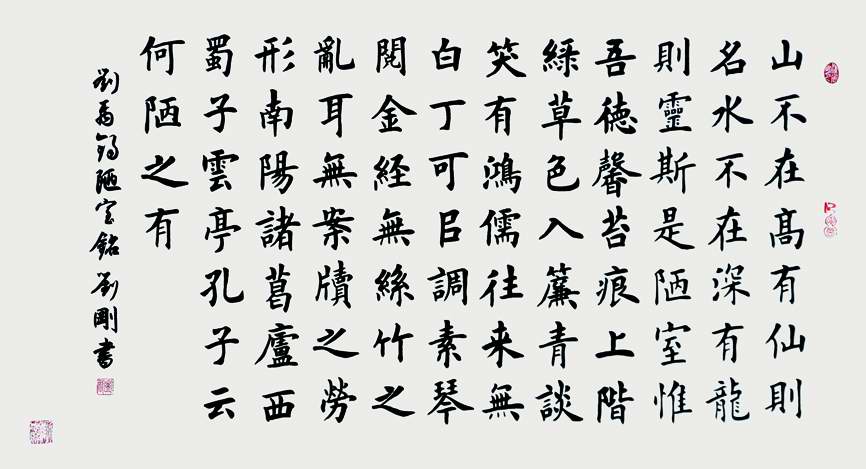 山不在髙有仙則
名水不在深有龍
則靈斯是陋室惟
吾徳馨苔痕上階
綠草色入簾青談
笑有鴻儒往来無
白丁可㠯調素琴
閱金経無絲竹之
亂耳無案牘之勞
形南陽諸葛廬西
蜀子雲亭孔子云
何陋之有
劉禹錫陋室銘劉剛書